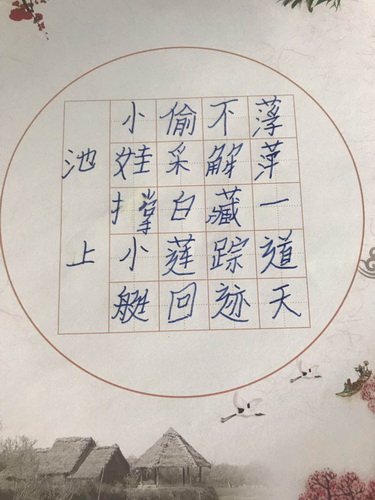 池上
小娃撑小艇
偷采白莲回
不解藏踪迹
浮萍一道天